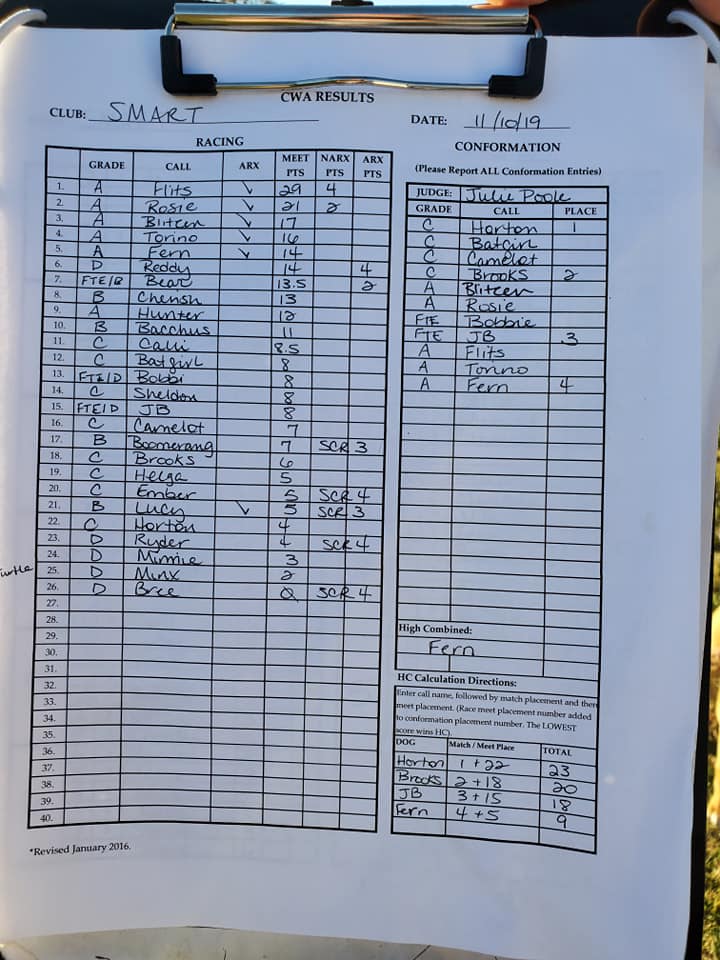 CWA RESULTS
CLUB: SMART
DATE: 11/10/19
RACING
GRADE CALL ARX MEET PTS NARX PTS ARX PTS
1. A Flits ✓ 29 4
2. A Rosie ✓ 21 2
3. A Blitzen ✓ 17
4. A Torino ✓ 16
5. A Fern ✓ 14
6. D Reddy 14 4
7. FTE/B Bear 13.5 2
8. B Cherish 13
9. A Hunter 12
10. B Bacchus 11
11. C Calli 8.5
12. C Batgirl 8
13. FTE/D Bobbi 8
14. C Sheldon 8
15. FTE/D JB 8
16. C Camelot 7
17. B Boomerang 7 SCR 3
18. C Brooks 6
19. C Helga 5
20. C Ember 5 SCR 4
21. B Lucy ✓ 5 SCR 3
22. C Horton 4
23. D Ryder 4 SCR 4
24. D Minnie 3
25. D Minx 2
26. D Bree 0 SCR 4
27.
28.
29.
30.
31.
32.
33.
34.
35.
36.
37.
38.
39.
40.
*Revised January 2016.
CONFORMATION
(Please Report ALL Conformation Entries)
JUDGE: Julie Poole
GRADE CALL PLACE
C Horton 1
C Batgirl
C Camelot
C Brooks 2
A Blitzen
A Rosie
FTE Bobbie
FTE JB 3
A Flits
A Torino
A Fern 4
High Combined:
Fern
HC Calculation Directions:
Enter call name, followed by match placement and then
meet placement. (Race meet placement number added
to conformation placement number. The LOWEST
score wins HC).
DOG Match / Meet Place TOTAL
Horton 1 + 22 23
Brooks 2 + 18 20
JB 3 + 15 18
Fern 4 + 5 9